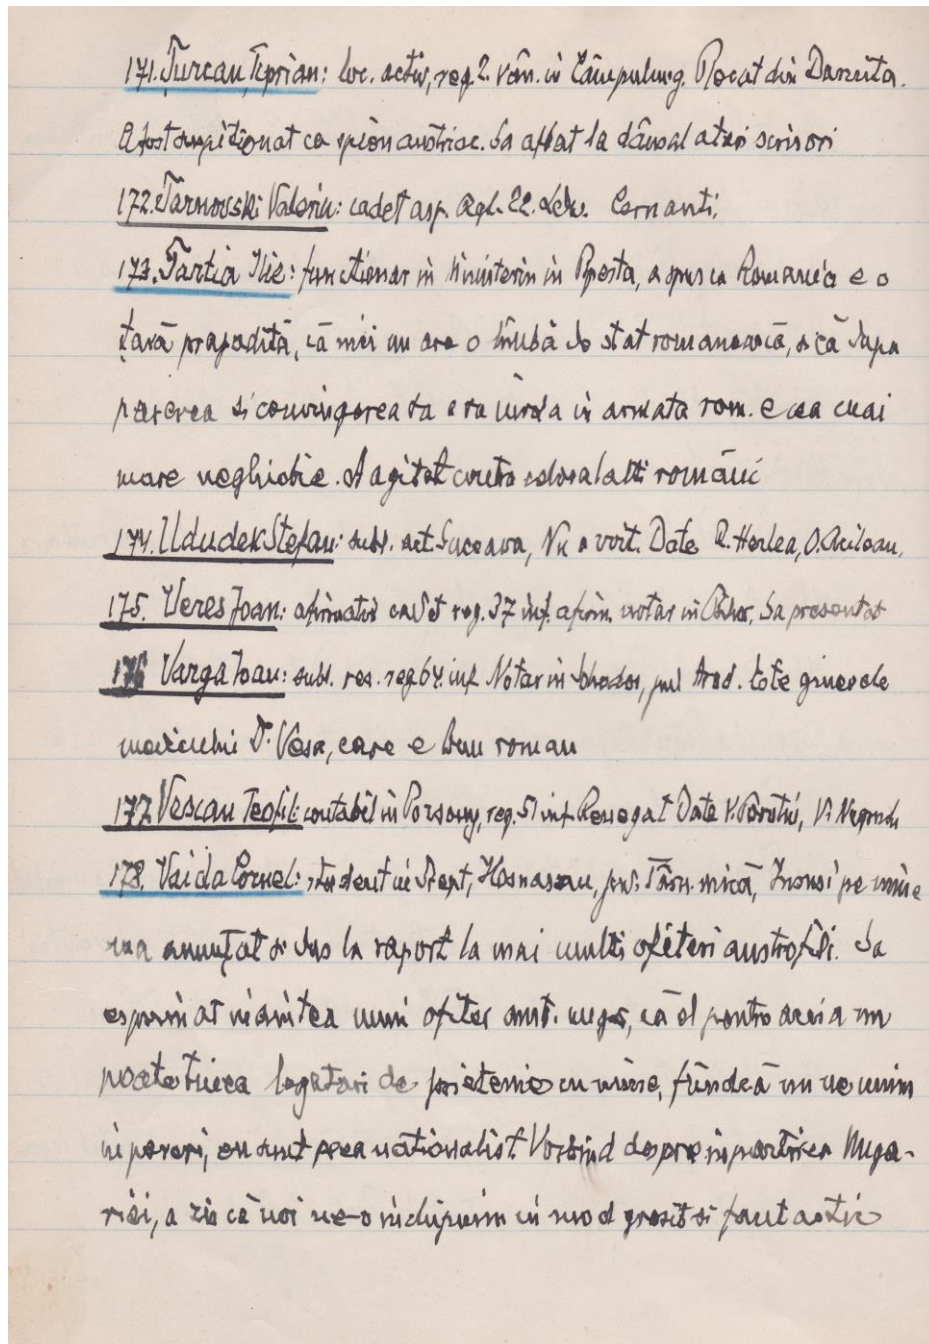 171. Turcan Ciprian: loc. activ, reg. 2. vân. in Câmpulung. Plecat din Darnita.
A fost suspitionat ca spion austriac. Sa aflat la dânsul atari scrisori
172. Tarnovski Valeriu: cadet asp. Regl. 22. Ldw. Cernauti.
173. Tartia Ilie: functionar in Ministeriu in Ppesta, a spus ca Romania e o
țară prapadită, că nici nu are o limbă de stat romanească, si că dupa
parerea si convingerea sa a sa înrola in armata rom. e cea mai
mare neghiobie. A agitat contra celoralalti români
174. Ududek Stefan: subl. act. Suceava, Nu a voit. Date R. Herlea,
175. Veres Ioan: afirmativ cadet reg. 37 inf. afirm. notar in Bihor, Sa presentat
176 Varga Ioan: subl. res. reg 64. inf. Notar in jud Arad. tote ginerele
medicului D. Vesa, care e bun roman
177. Vescan Teofil: contabil in Porsony, reg. 51 inf. Renegat Date V.
178. Vaida Cornel: student in Drept, jud: Târn. mică, Insusi pe mine
ma anunțat si dus la raport la mai multi ofiteri austrofili. Sa
esprimat inaintea unui ofiter aust. ungar, că el pentru aceia nu
poate tinea legaturi de prietenie cu mine, fiindcă nu ne unim
in pareri, eu sunt prea nationalist. Vorbind despre inpartirea Unga-
riei, a zis că noi ne-o inchipuim in mod gresit si fantastic